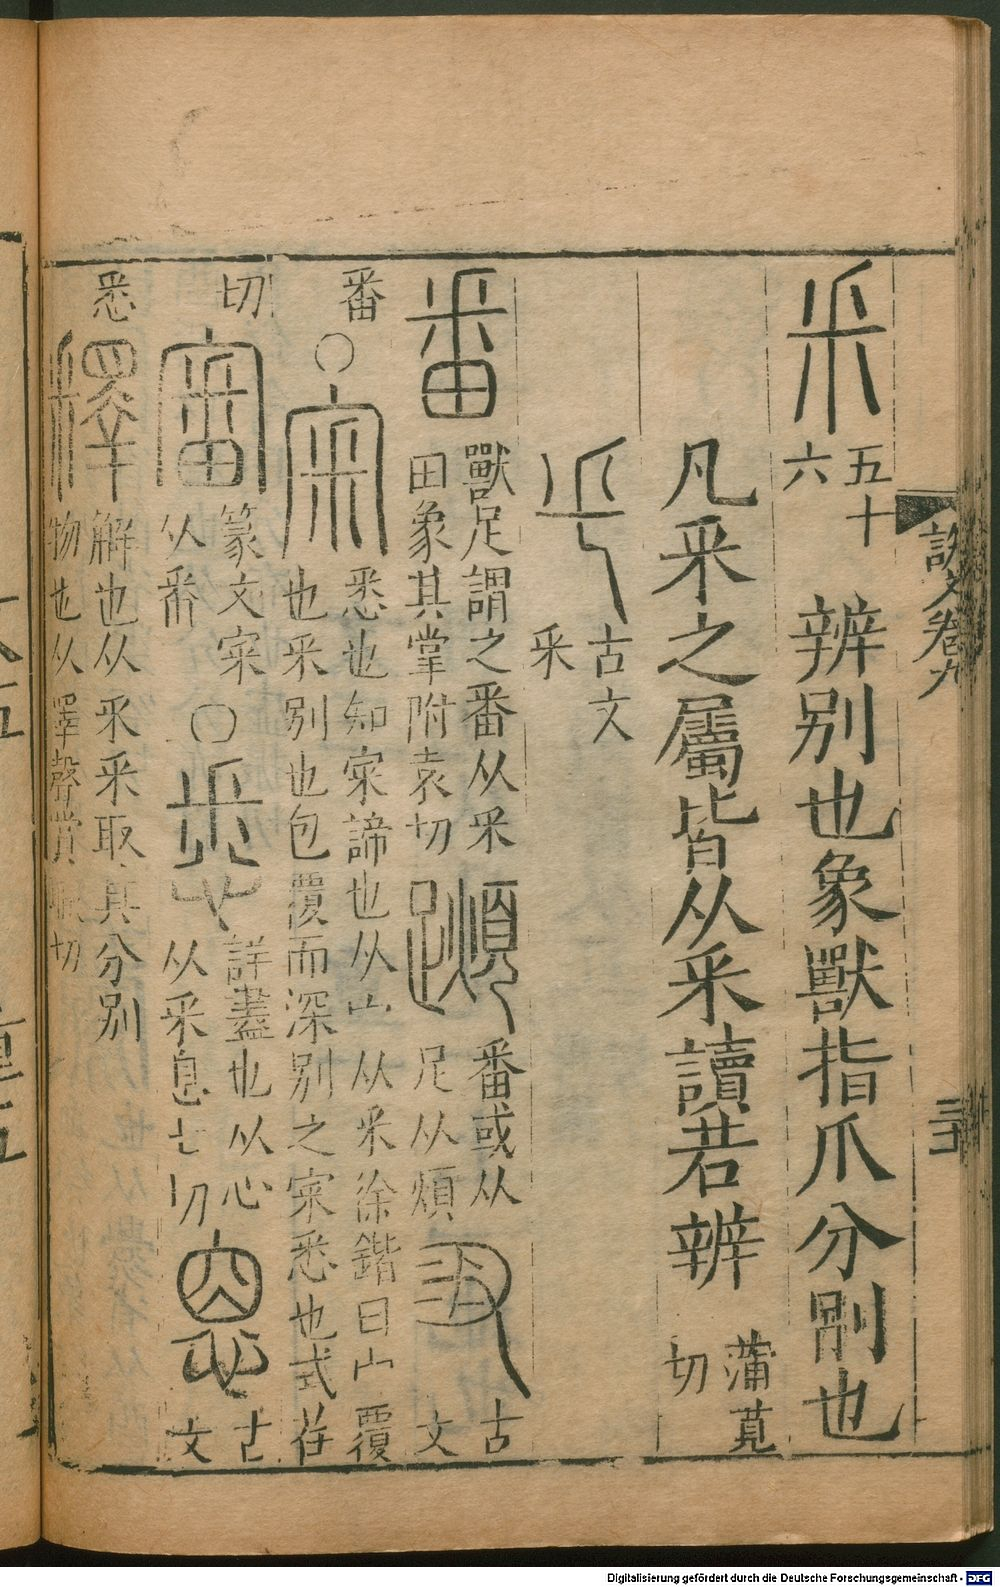 説文卷九
釆 五十六 辨別也象獸指爪分別也
凡釆之屬皆从釆讀若辨 蒲莧切
古文釆
番 獸足謂之番从釆田象其掌附袁切 𨆌 番或从足从煩 古文
番 ○ 宷 悉也知宷諦也从宀从釆徐鍇曰宀覆也釆別也包覆而深別之宷悉也式荏
切 審 篆文宷从番 ○ 悉 詳盡也从心从釆息七切 古文
悉 釋 解也从釆釆取其分別物也从睪聲賞職切
Digitalisierung gefördert durch die Deutsche Forschungsgemeinschaft - DFG